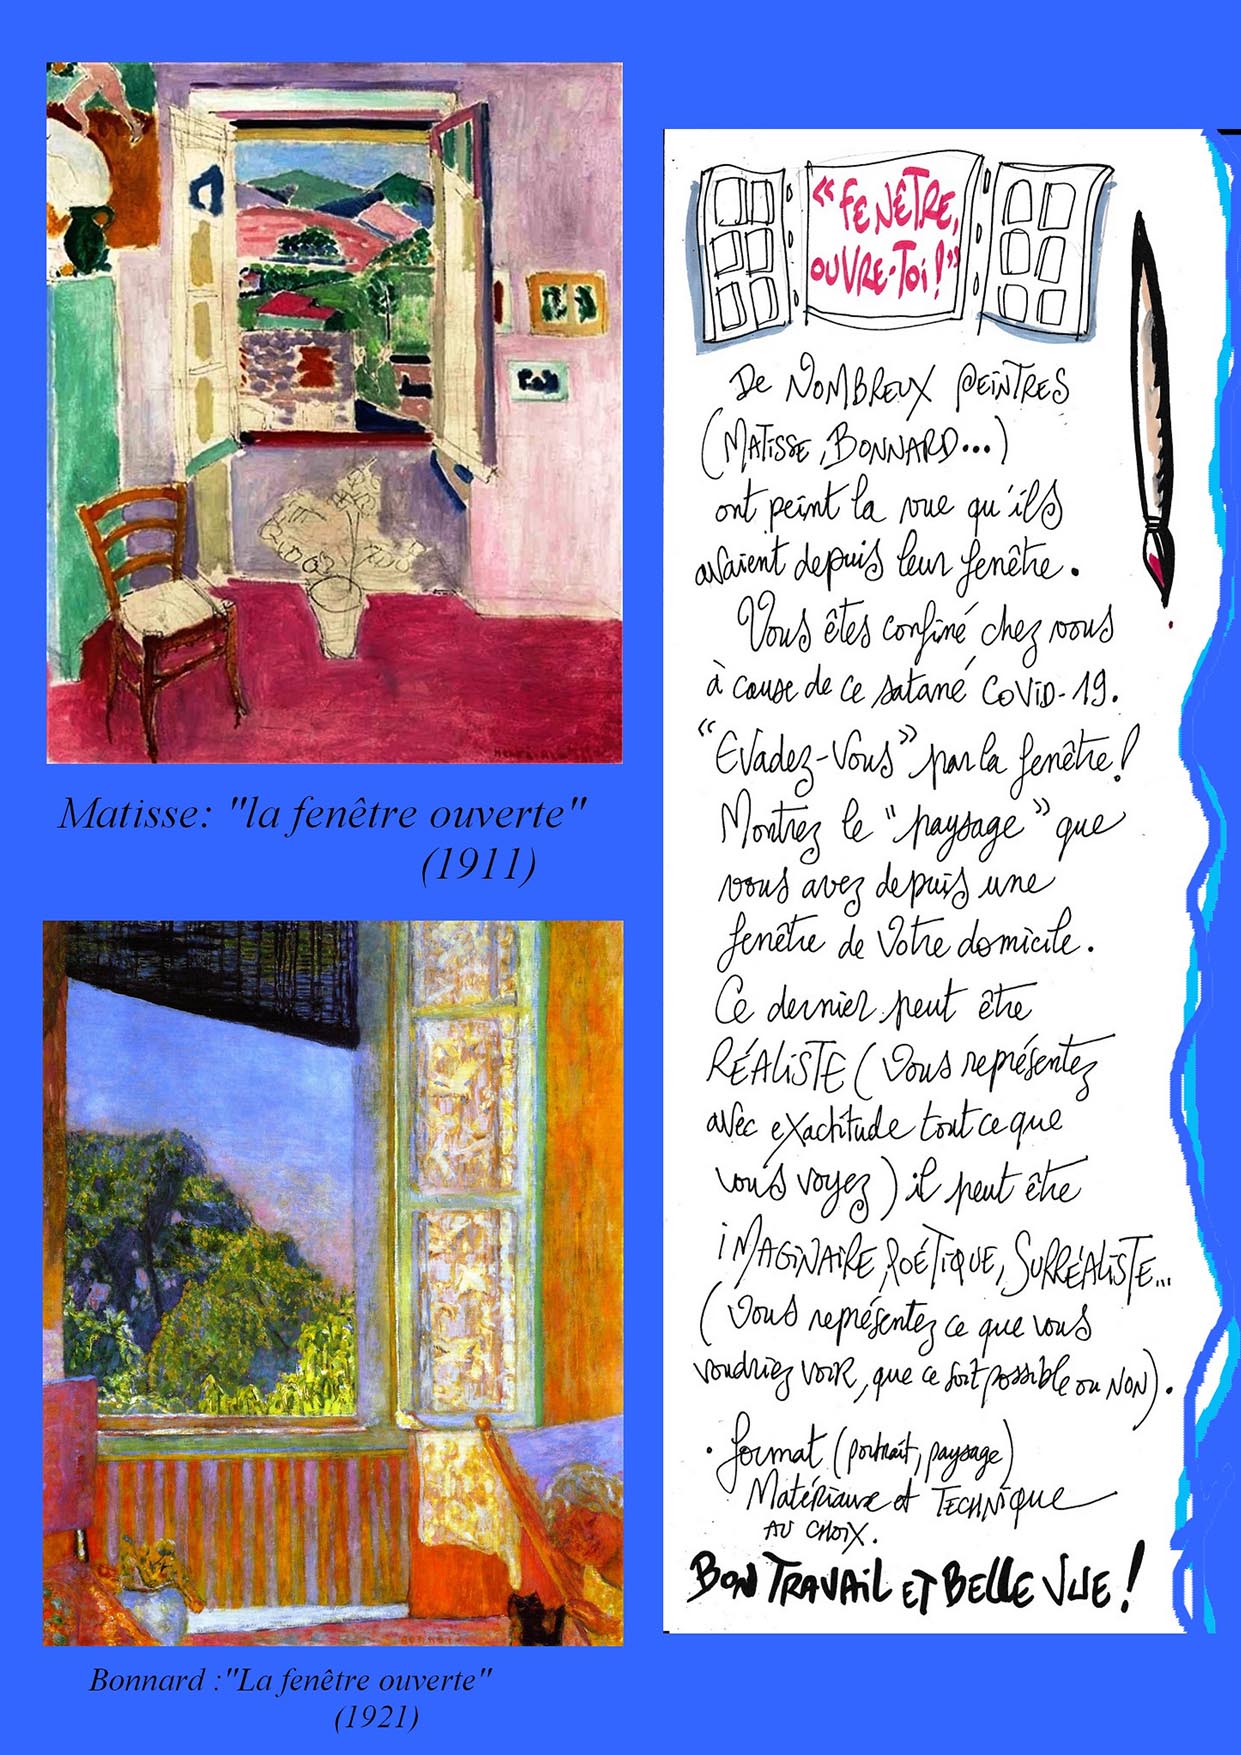 Matisse: "la fenêtre ouverte"
(1911)
Bonnard :"La fenêtre ouverte"
(1921)
"FENÊTRE,
OUVRE-TOI!"
De NOMBREUX PEINTRES
(MATISSE, BONNARD...)
ont peint la vue qu'ils
avaient depuis leur fenêtre.
Vous êtes confiné chez vous
à cause de ce satané COVID-19.
"Evadez-vous" par la fenêtre!
Montrez le "paysage" que
vous avez depuis une
fenêtre de votre domicile.
Ce dernier peut être
RÉALISTE (Vous représentez
avec exactitude tout ce que
vous voyez) il peut être
iMAGINAIRE, POÉTIQUE, SURRÉALISTE...
(Vous représentez ce que vous
voudriez voir, que ce soit possible ou NON).
• format (portrait, paysage)
Matériaux et TECHNIQUE
AU CHOIX.
BON TRAVAIL ET BELLE VUE!